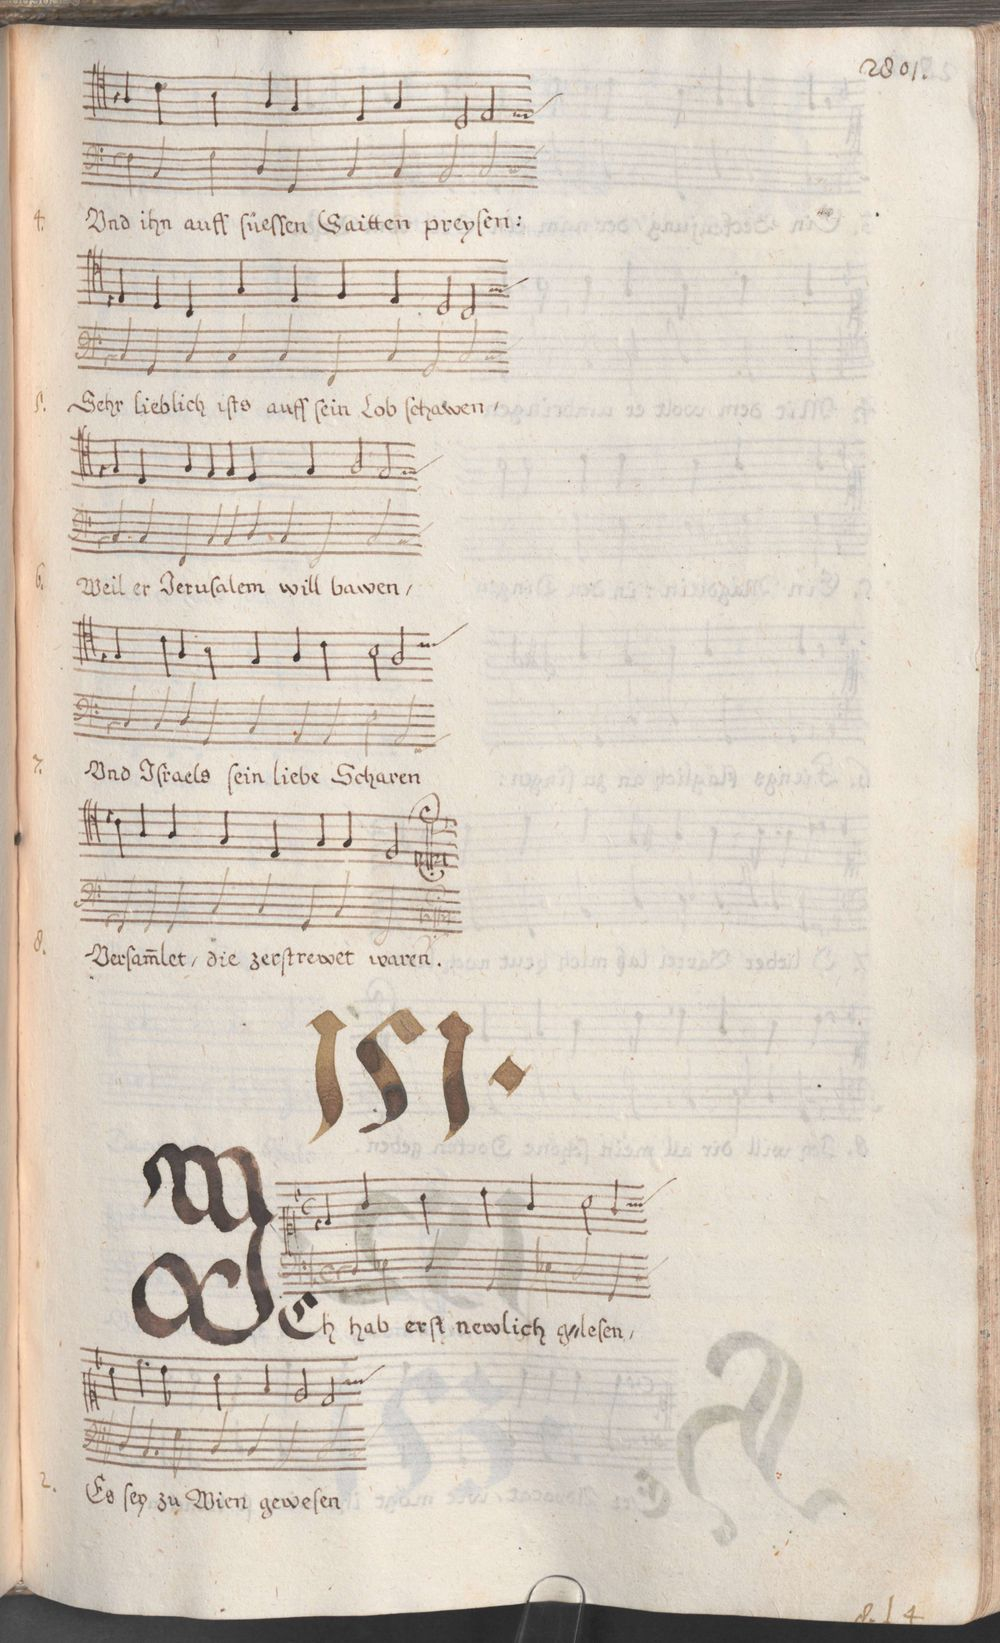 2801.
4. Vnd ihn auff süessen Saitten preysen:
5. Sehr lieblich ists auff sein Lob schawen,
6. Weil er Jerusalem will bawen,
7. Vnd Israels sein liebe Scharen
8. Versam̄let, die zerstrewet waren.
151.
Ich hab erst newlich gelesen,
2. Es sey zu Wien gewesen